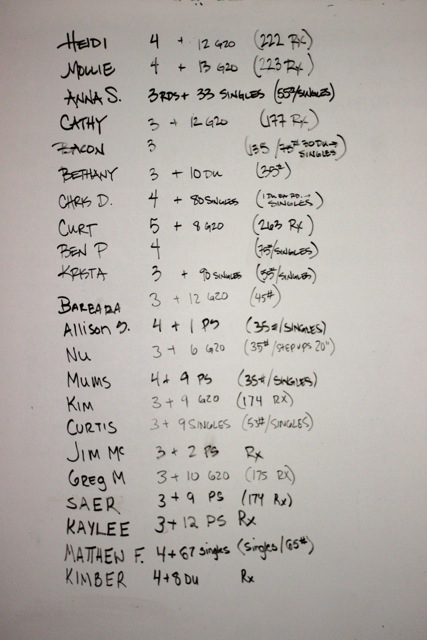 HEIDI 4 + 12 G2O (222 Rx)
MOLLIE 4 + 13 G2O (223 Rx)
ANNA S. 3RDS+ 33 SINGLES (55#/SINGLES)
CATHY 3 + 12 G2O (177 Rx)
BACON 3 (135 /75# 30 DU→ SINGLES)
BETHANY 3 + 10 DU (35#)
CHRIS D. 4 + 80 SINGLES (1 DU EA RD.→ SINGLES)
CURT 5 + 8 G2O (263 Rx)
BEN P 4 (75#/SINGLES)
KRISTA 3 + 90 SINGLES (55#/SINGLES)
BARBARA 3 + 12 G2O (45#)
Allison S. 4 + 1 PS (35#/SINGLES)
NU 3 + 6 G2O (35#/STEP UPS 20")
MUMS 4 + 9 PS (35#/SINGLES)
KIM 3 + 9 G2O (174 RX)
CURTIS 3 + 9 SINGLES (53#/SINGLES)
JIM Mc 3 + 2 PS Rx
GREG M 3 + 10 G2O (175 RX)
SAER 3 + 9 PS (174 Rx)
KAYLEE 3 + 12 PS Rx
MATTHEW F. 4 + 67 singles (singles/65#)
KIMBER 4 + 8 DU Rx